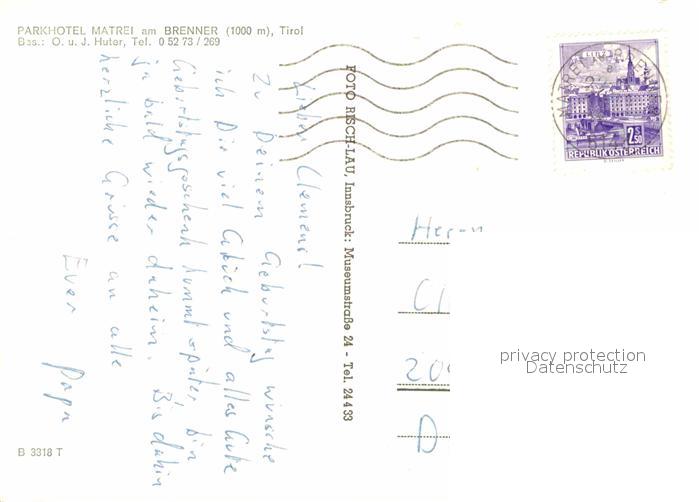 PARKHOTEL MATREI am BRENNER (1000 m), Tirol
Bes.: O. u. J. Huter, Tel. 0 52 73 / 269
Lieber Clemens!
Zu Deinem Geburtstag wünsche
ich Dir viel Glück und alles Gute
Geburtstagsgeschenk kommt später, bin
ja bald wieder daheim. Bis dahin
herzliche Grüsse an alle
Euer Papa
FOTO RISCH-LAU, Innsbruck: Museumstraße 24 - Tel. 24 4 33
LINZ
2.50
REPUBLIK ÖSTERREICH
MATREI
Herrn
Cl
20
D
privacy protection
Datenschutz
B 3318 T